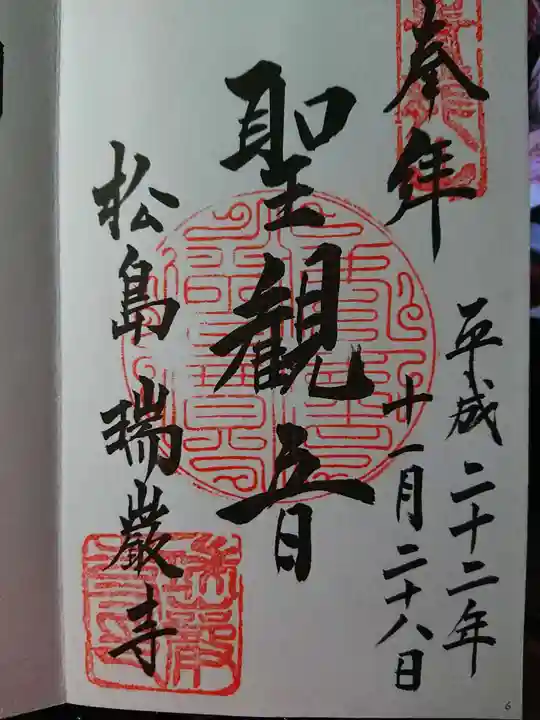 奉拝
平成二十二年
十一月二十八日
聖観音
松島 瑞巌寺
6